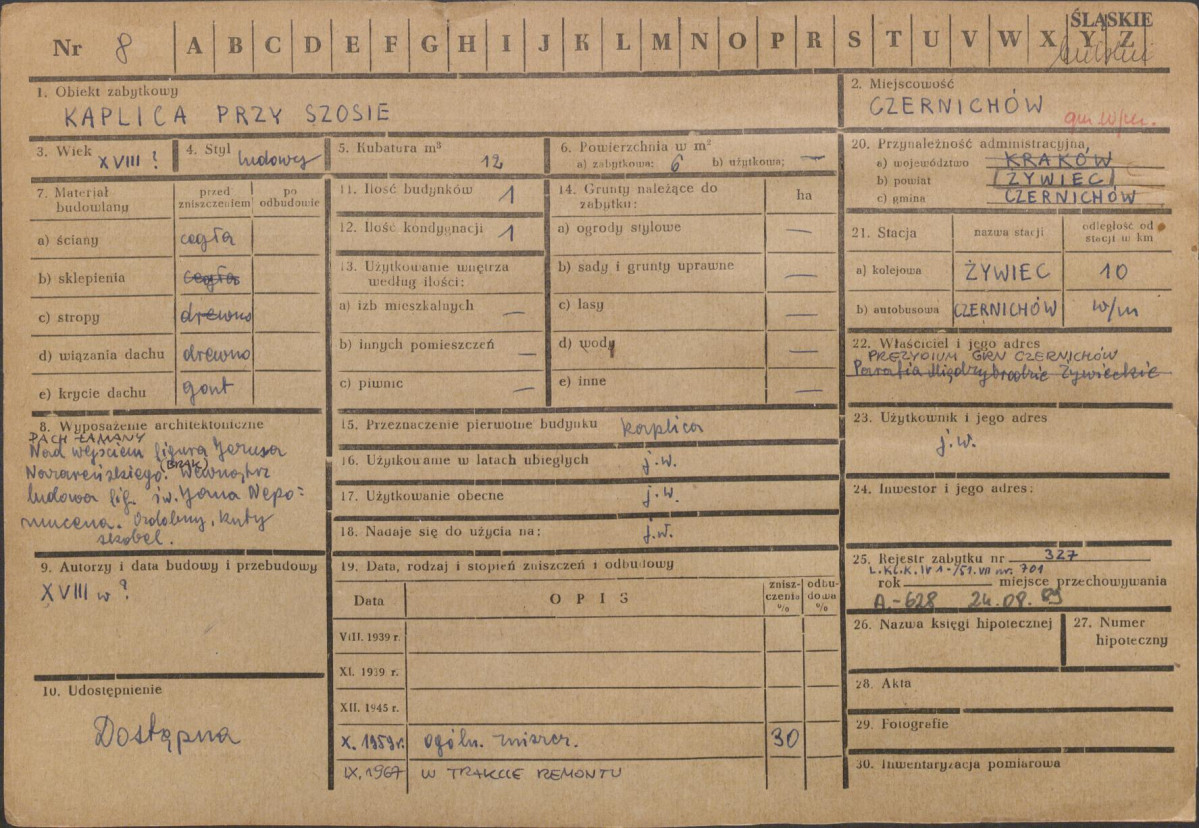 Nr 8 A B C D E F G H I J K L M N O P R S T U V W X Y Z
ŚLĄSKIE
1. Obiekt zabytkowy
KAPLICA PRZY SZOSIE
2. Miejscowość
CZERNICHÓW
3. Wiek XVIII ?
4. Styl ludowy
5. Kubatura m³ 12
6. Powierzchnia w m²
a) zabytkowa: 6 b) użytkowa: —
20. Przynależność administracyjna
a) województwo KRAKÓW
b) powiat ŻYWIEC
c) gmina CZERNICHÓW
7. Materiał budowlany
przed zniszczeniem
po odbudowie
a) ściany cegła
b) sklepienia cegła
c) stropy drewno
d) wiązania dachu drewno
e) krycie dachu gont
11. Ilość budynków 1
12. Ilość kondygnacji 1
13. Użytkowanie wnętrza
według ilości:
a) izb mieszkalnych —
b) innych pomieszczeń —
c) piwnic —
14. Grunty należące do
zabytku: ha
a) ogrody stylowe —
b) sady i grunty uprawne —
c) lasy —
d) wody —
e) inne —
21. Stacja nazwa stacji odległość od stacji w km
a) kolejowa ŻYWIEC 10
b) autobusowa CZERNICHÓW w/m
22. Właściciel i jego adres
PREZYDIUM GRN CZERNICHÓW
Parafia Międzybrodzie Żywieckie
23. Użytkownik i jego adres
j.w.
24. Inwestor i jego adres:
8. Wyposażenie architektoniczne
DACH ŁAMANY
Nad wejściem figura Jezusa
Nazareńskiego. (BRAK) Wewnątrz
ludowa fig. św. Jana Nepo=
mucena. Ozdobny, kuty
skobel.
15. Przeznaczenie pierwotne budynku kaplica
16. Użytkowanie w latach ubiegłych j.w.
17. Użytkowanie obecne j.w.
18. Nadaje się do użycia na: j.w.
9. Autorzy i data budowy i przebudowy
XVIII w ?
10. Udostępnienie
Dostępna
19. Data, rodzaj i stopień zniszczeń i odbudowy
Data OPIS zniszczenia % odbudowa %
VIII. 1939 r.
XI. 1939 r.
XII. 1945 r.
X. 1959 r. ogóln. zniszcz. 30
IX. 1967 W TRAKCIE REMONTU
25. Rejestr zabytku nr 327
L.Kl.K. IV 1-/51. VII nr. 701
rok miejsce przechowywania
A.-628 24.08.89
26. Nazwa księgi hipotecznej
27. Numer hipoteczny
28. Akta
29. Fotografie
30. Inwentaryzacja pomiarowa